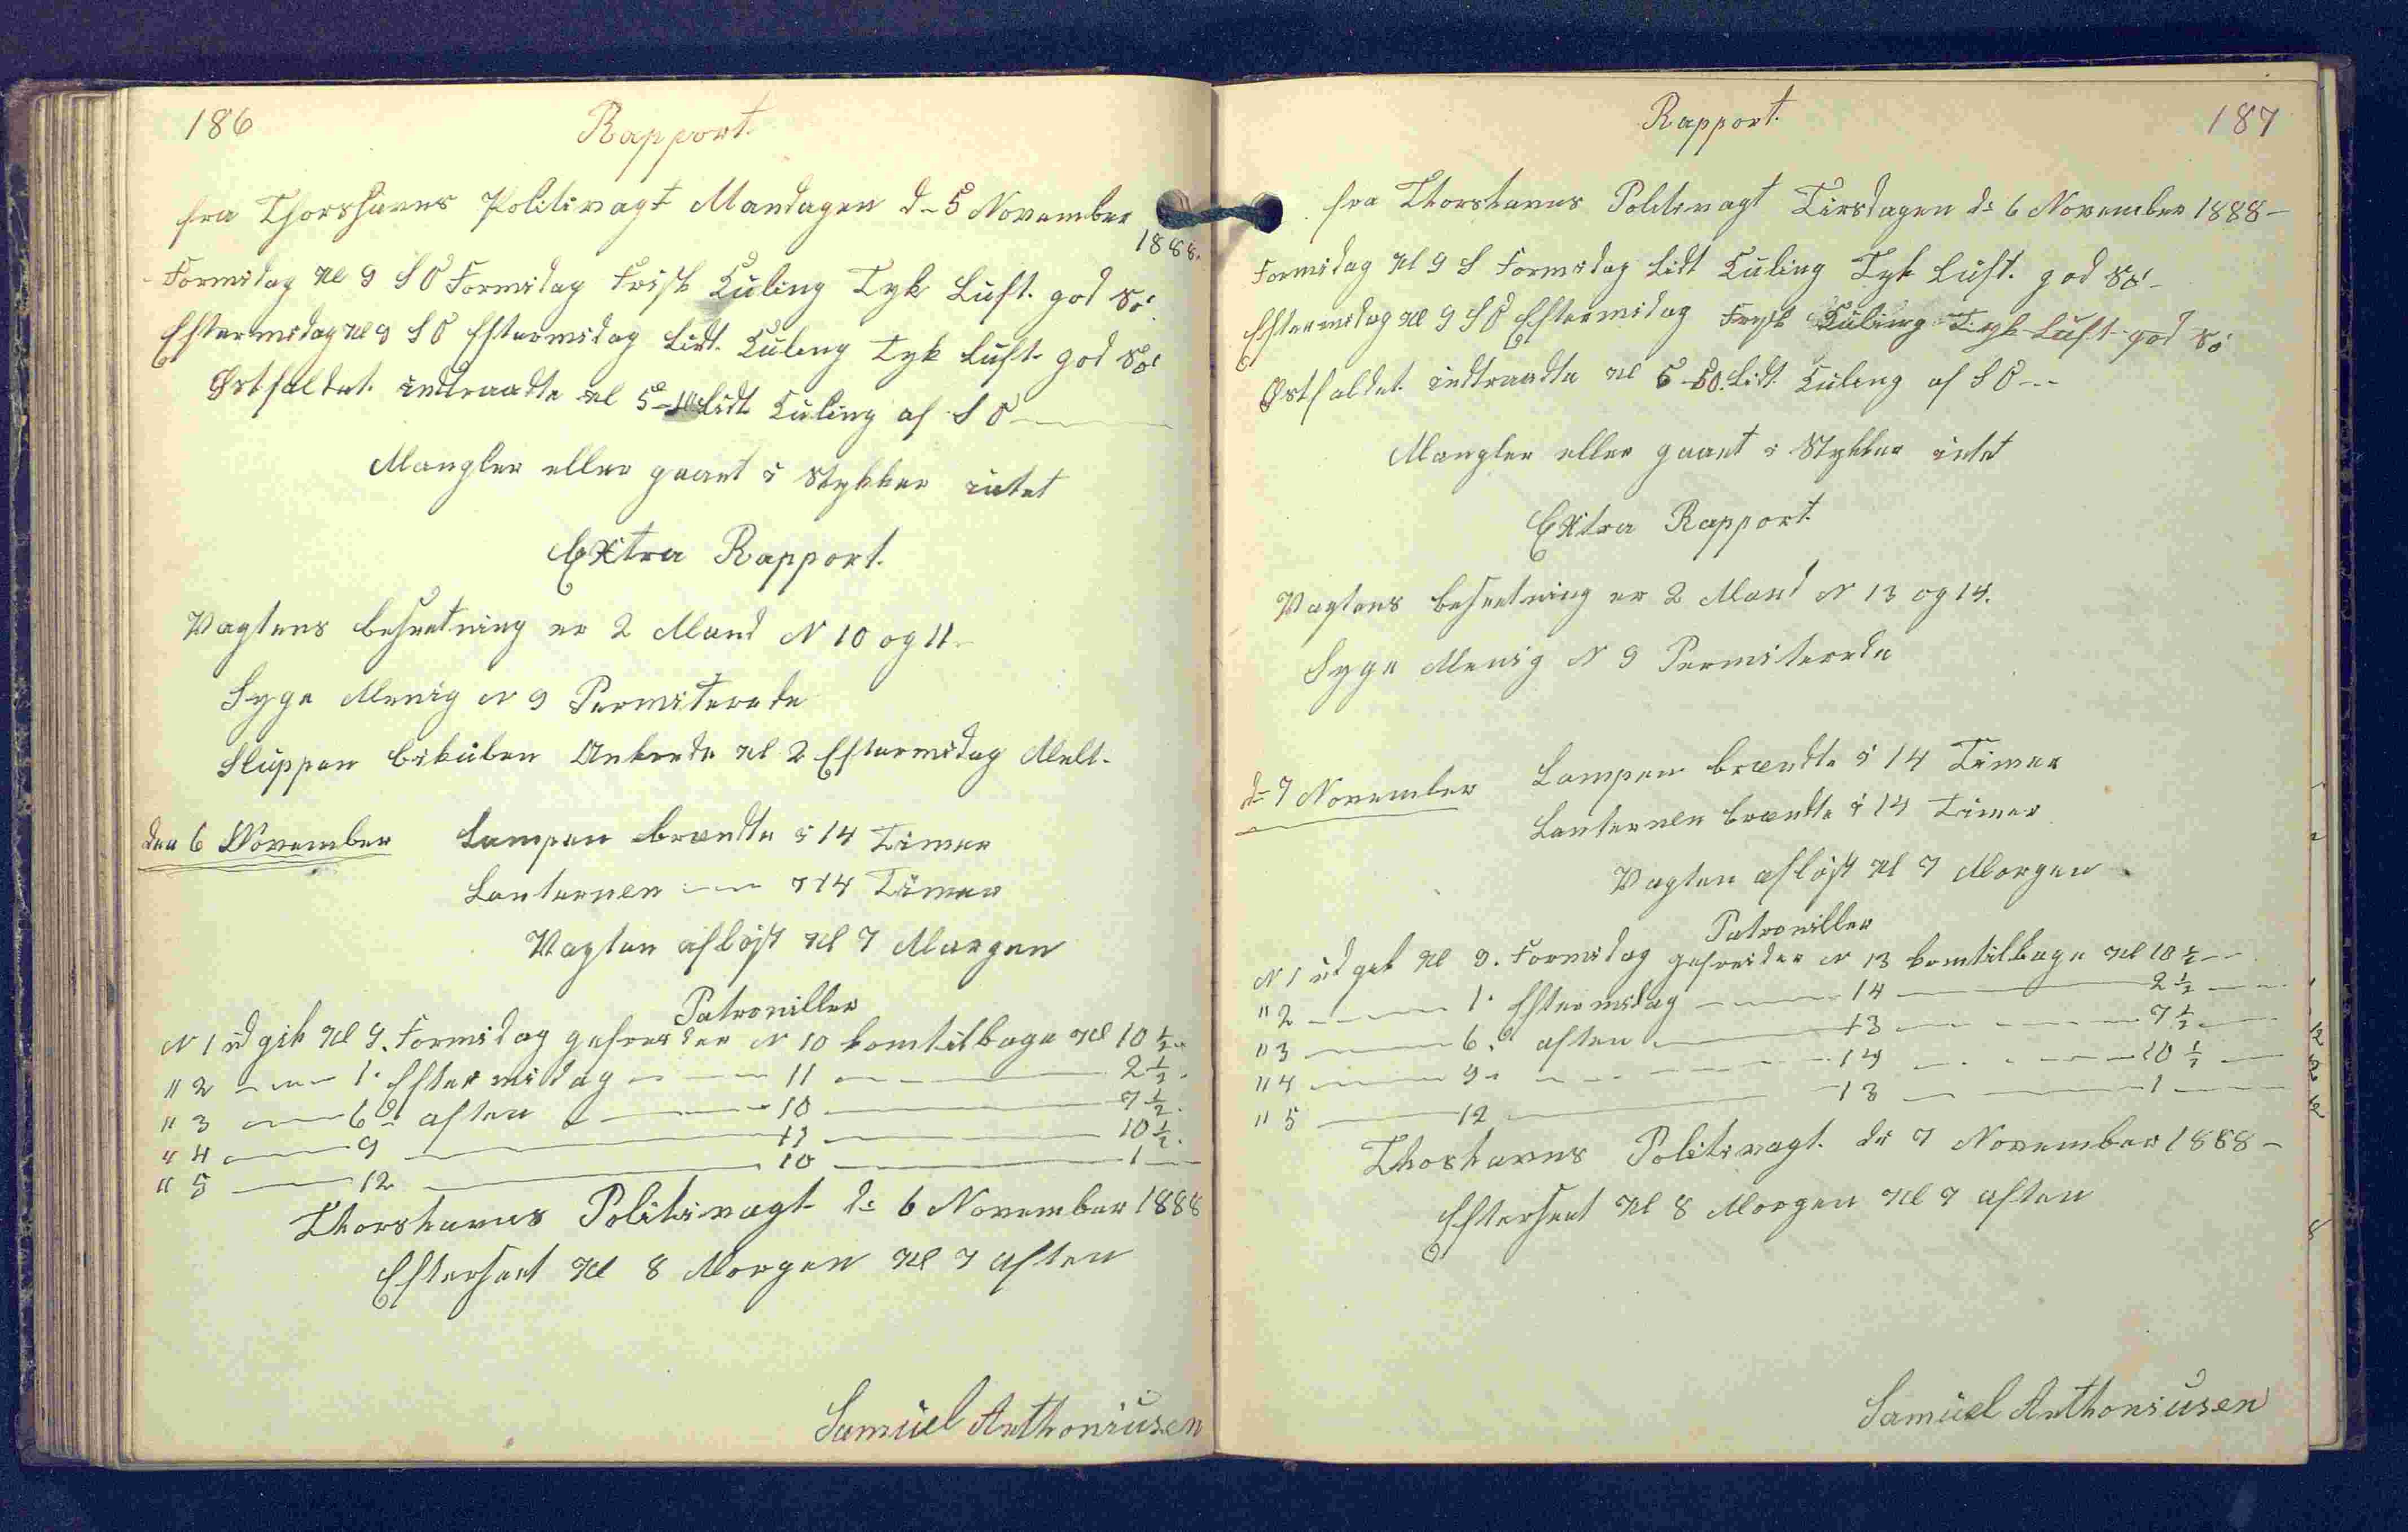 186
Rapport.
fra Thorshavns Politivagt Mandagen d- 5 November
1888.
Formidag Kl 9 S O Formidag Frisk Kuling Tyk Luft. god Sö.
Eftermidag Kl 9 S O Eftermidag Lidt. Kuling Tyk Luft- god Sö
Østfaldet. indtraadte Kl 5- Lidt Kuling af S O
Mangler eller gaaet i Stykker intet
Extra Rapport.
Vagtens besætning er 2 Mand N 10 og 11-
Syge Menig N 9 Permiterede
Sluppen Ankrede Kl 2 Eftermidag
den 6 November Lampen brændte i 14 Timer
Lanternen — i 14 Timer
Vagten afløst Kl 7 Morgen
Patroniller
N 1 udgik Kl 9. Formidag gefreider N 10 komtilbage Kl 10 ½
" 2 — 1. Eftermidag — 11 — 2 ½
" 3 — 6 aften — 10 — 7 ½.
" 4 — 9 — 11 — 10 ½.
" 5 — 12 — 10 — 1 —
Thorshavns Politivagt d: 6 November 1888
Efterseet Kl 8 Morgen Kl 7 aften
Samuel Anthoniusen
Rapport.
187
fra Thorshavns Politivagt Tirsdagen d: 6 November 1888-
Formidag Kl 9 S Formidag Lidt Kuling Tyk Luft. god Sö-
Eftermidag Kl 9 S O Eftermidag Frysk Kuling Tyk Luft- god Sö
Østfaldet. indtraadte Kl 5-50. Lidt. Kuling af S O --
Mangler eller gaaet i Stykker intet
Extra Rapport.
Vagtens besætning er 2 Mand N 13 og 14.
Syge Menig N 9 Permiterede
d- 7 November Lampen brændte i 14 Timer
Lanternen brændte i 14 Timer
Vagten afløst Kl 7 Morgen
Patroniller
N 1 udgik Kl 9. Formidag gefreider N 13 komtilbage Kl 10 ½ --
" 2 — 1. Eftermidag — 14 — 2 ½ —
" 3 — 6. aften — 13 — 7 ½ —
" 4 — 9 — 14 — 10 ½ —
" 5 — 12 — 13 — 1 —
Thorshavns Politivagt. d: 7 November 1888-
Efterseet Kl 8 Morgen Kl 7 aften
Samuel Anthoniusen